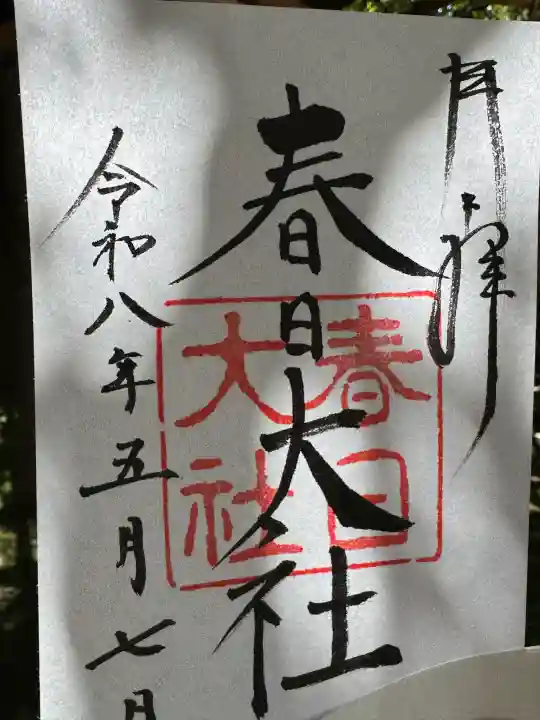 月拝
春日大社
春日
大社
令和八年五月七日